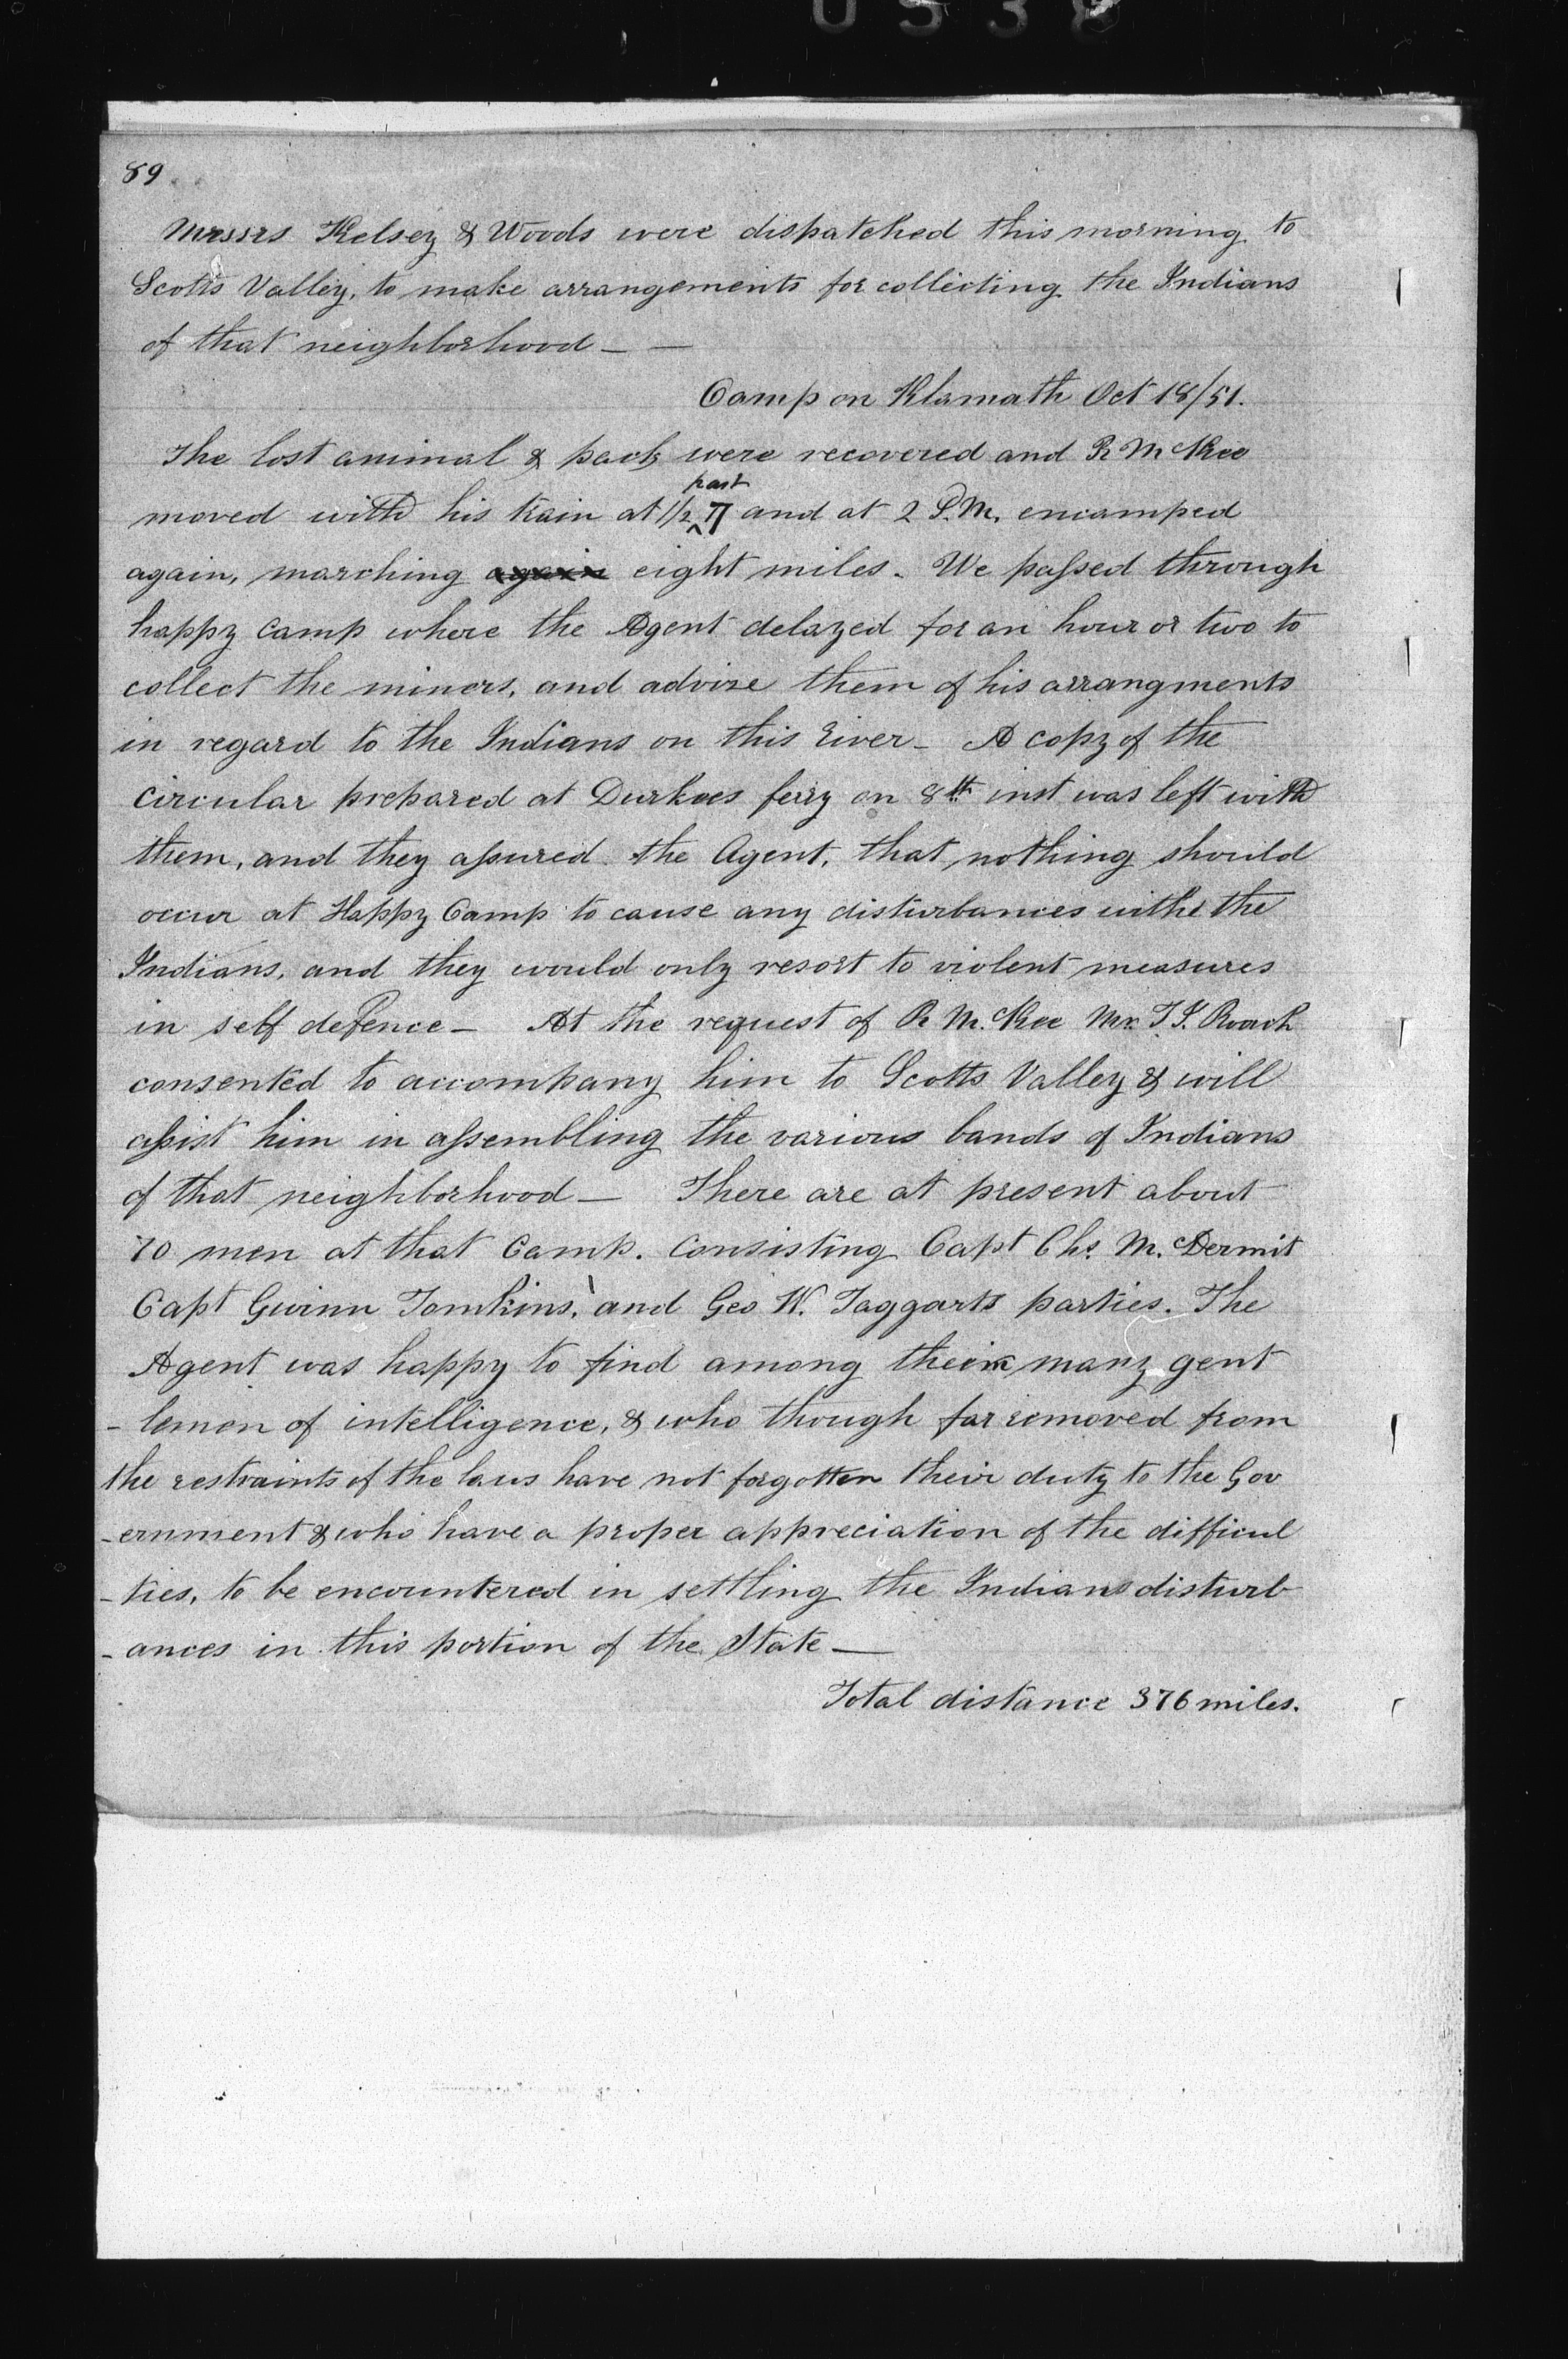 89
Messrs Kelsey & Woods were dispatched this morning to
Scotts Valley, to make arrangements for collecting the Indians
of that neighborhood — —
Camp on Klamath Oct 18/51.
The lost animal & pack were recovered and R McKee
past
moved with his train at 1/2 ^ 7 and at 2 P.M. encamped
again, marching again eight miles - We passed through
happy Camp where the Agent delayed for an hour or two to
collect the miners, and advise them of his arrangments
in regard to the Indians on this river - A copy of the
circular prepared at Durkees ferry on 8th inst was left with
them, and they assured the Agent, that nothing should
occur at Happy Camp to cause any disturbances withe the
Indians, and they would only resort to violent measures
in self defence — At the request of R McKee Mr. T. J. Roach
consented to accompany him to Scotts Valley & will
assist him in assembling the various bands of Indians
of that neighborhood — There are at present about
70 men at that Camp. Consisting Capt Chs. McDermit
Capt Gwinn Tomkins, and Geo W. Taggarts parties. The
Agent was happy to find among them many gent
- lemen of intelligence, & who though far removed from
the restraints of the laws have not forgotten their duty to the Gov
- ernment & who have a proper appreciation of the difficul
- ties, to be encountered in settling the Indian disturb
- ances in this portion of the State —
Total distance 376 miles.